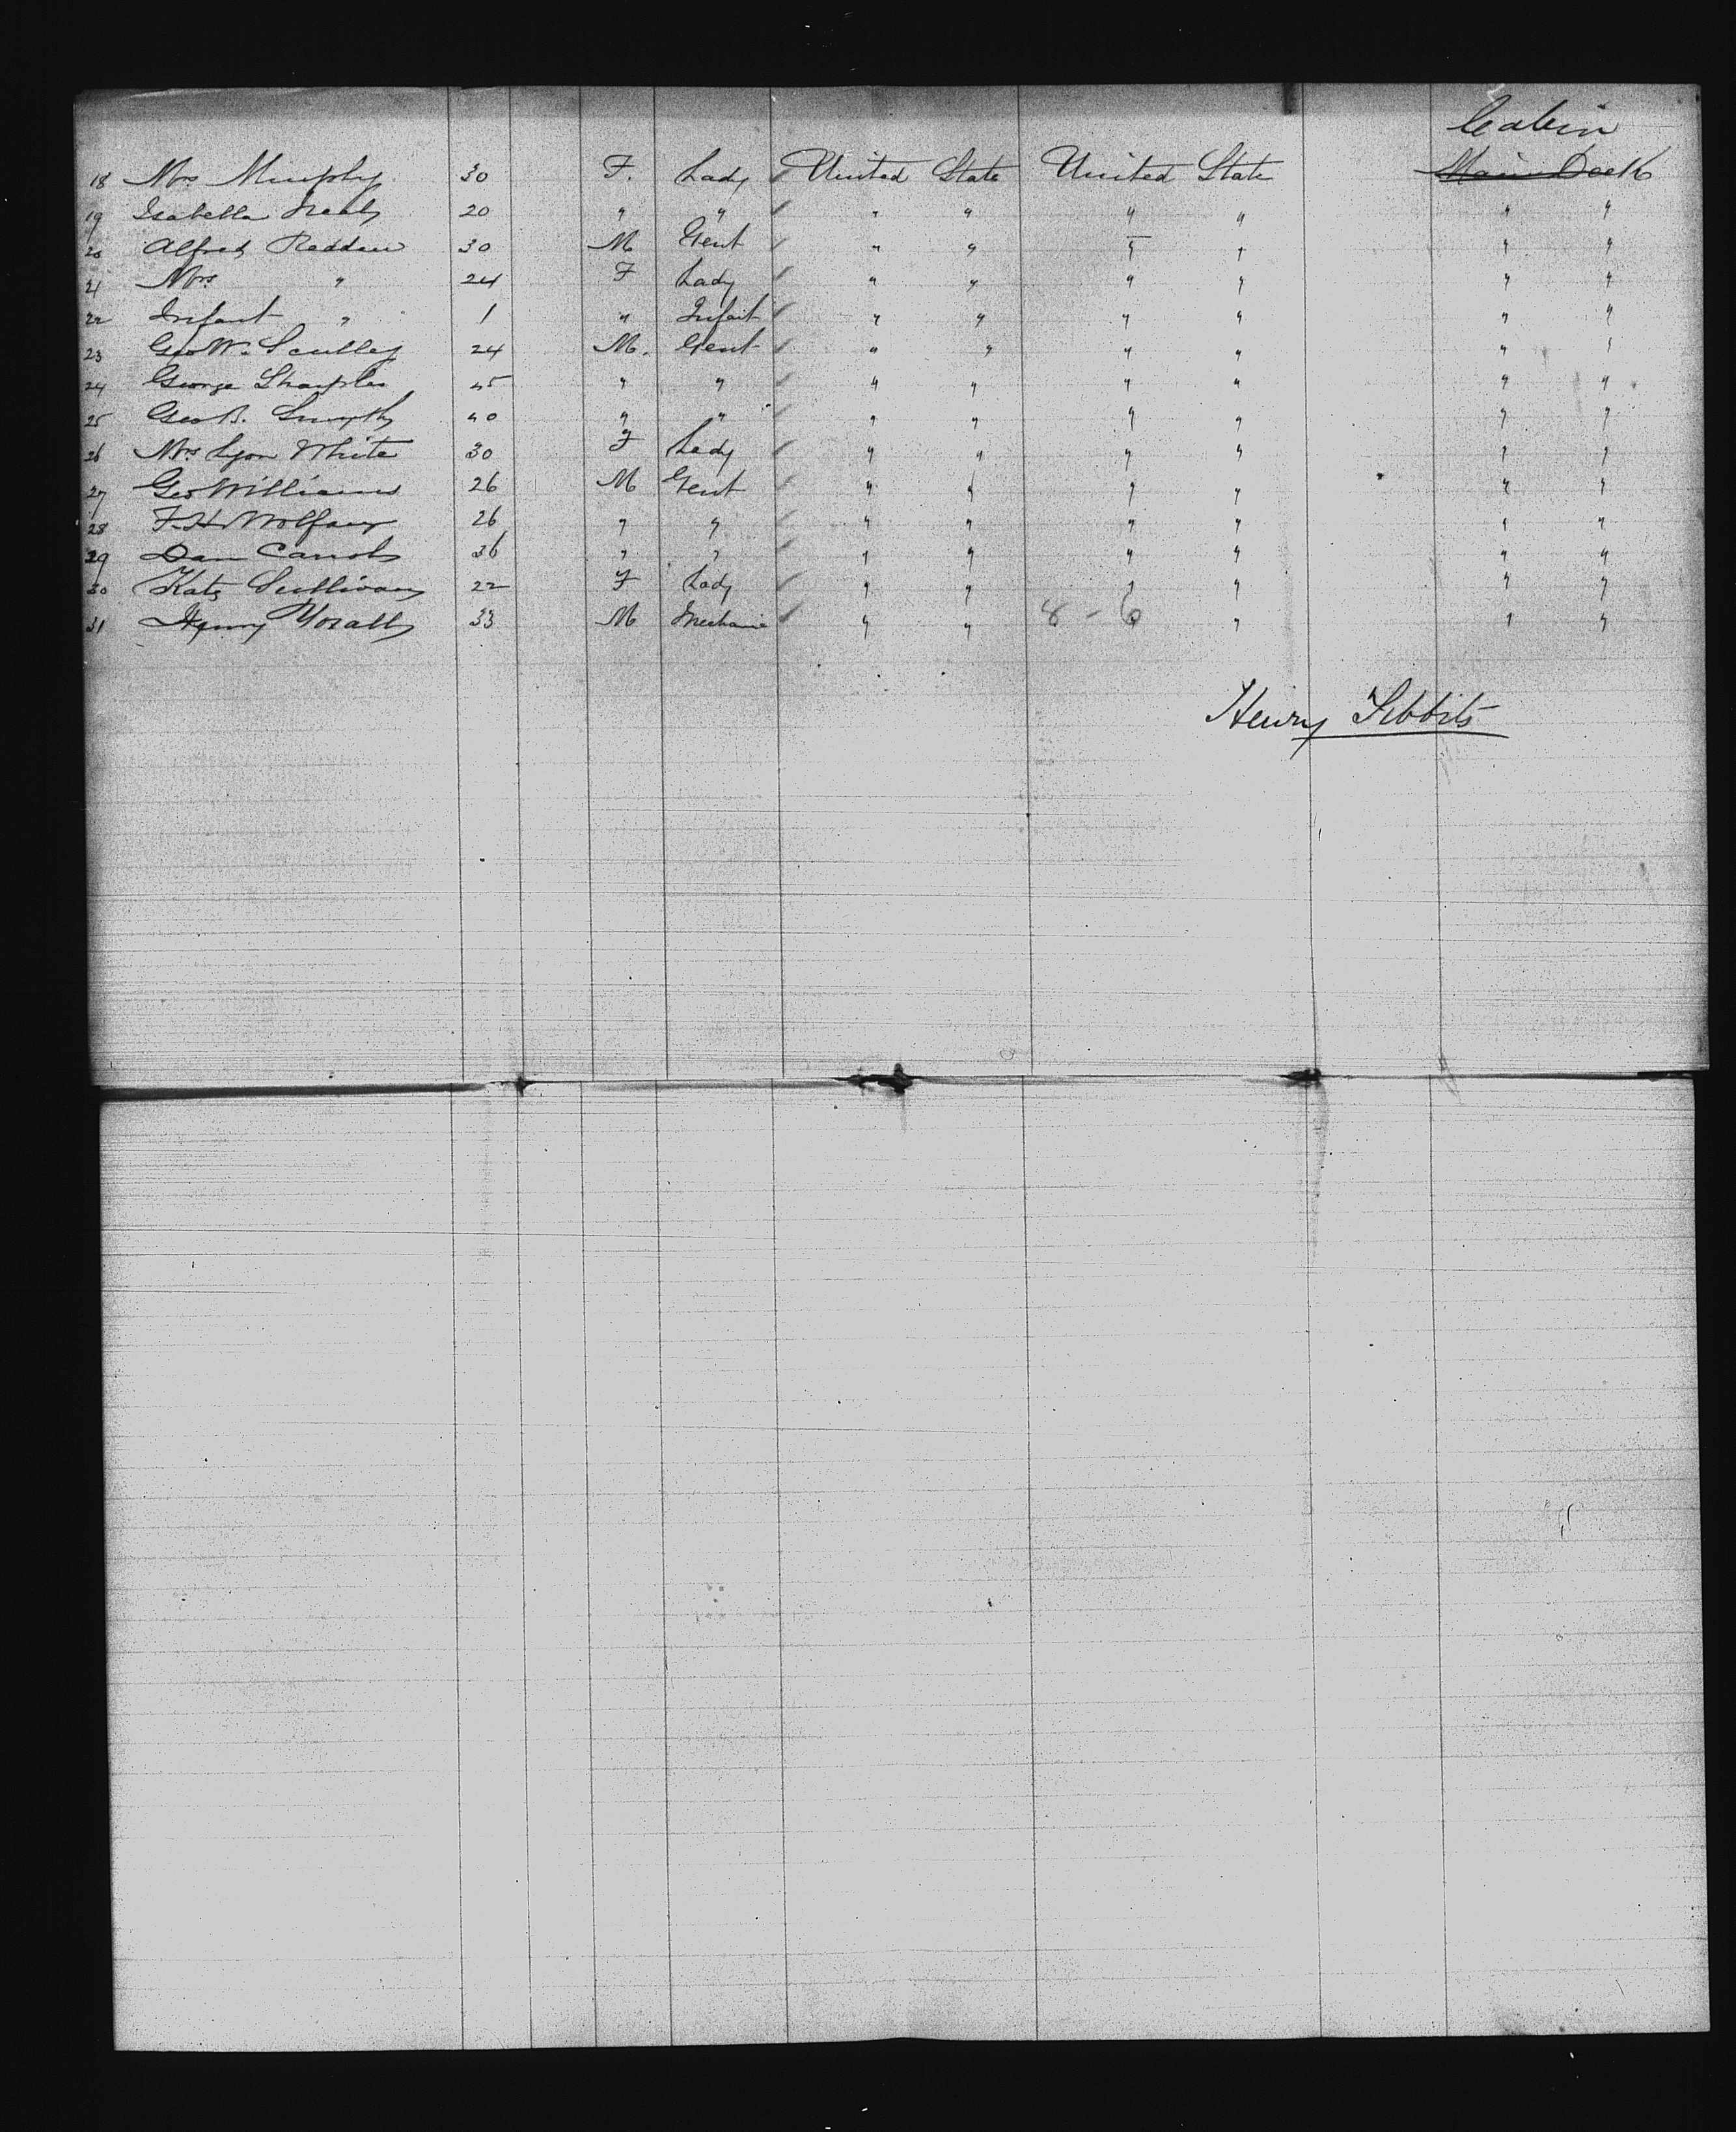 Cabin
18 Mrs Murphy 30 F. Lady United State United State Main Deck
19 Isabella 20 " " " " " " " "
20 Alfred Redden 30 M Gent " " " " " "
21 Mrs " 24 F Lady " " " " " "
22 Infant " 1 " Infant " " " " " "
23 Geo W. Sculley 24 M. Gent " " " " " "
24 George Sharples 45 " " " " " " " "
25 Geo B. Smyth 40 " " " " " " " "
26 Mrs Lyon White 30 F Lady " " " " " "
27 Geo Williams 26 M Gent " " " " " "
28 F. H. 26 " " " " " " " "
29 Dan 36 " " " " " " " "
30 Kate Sullivan 22 F Lady " " " " " "
31 Henry 33 M Mechanic " " 8 - 6 " " "
Henry Tibbits